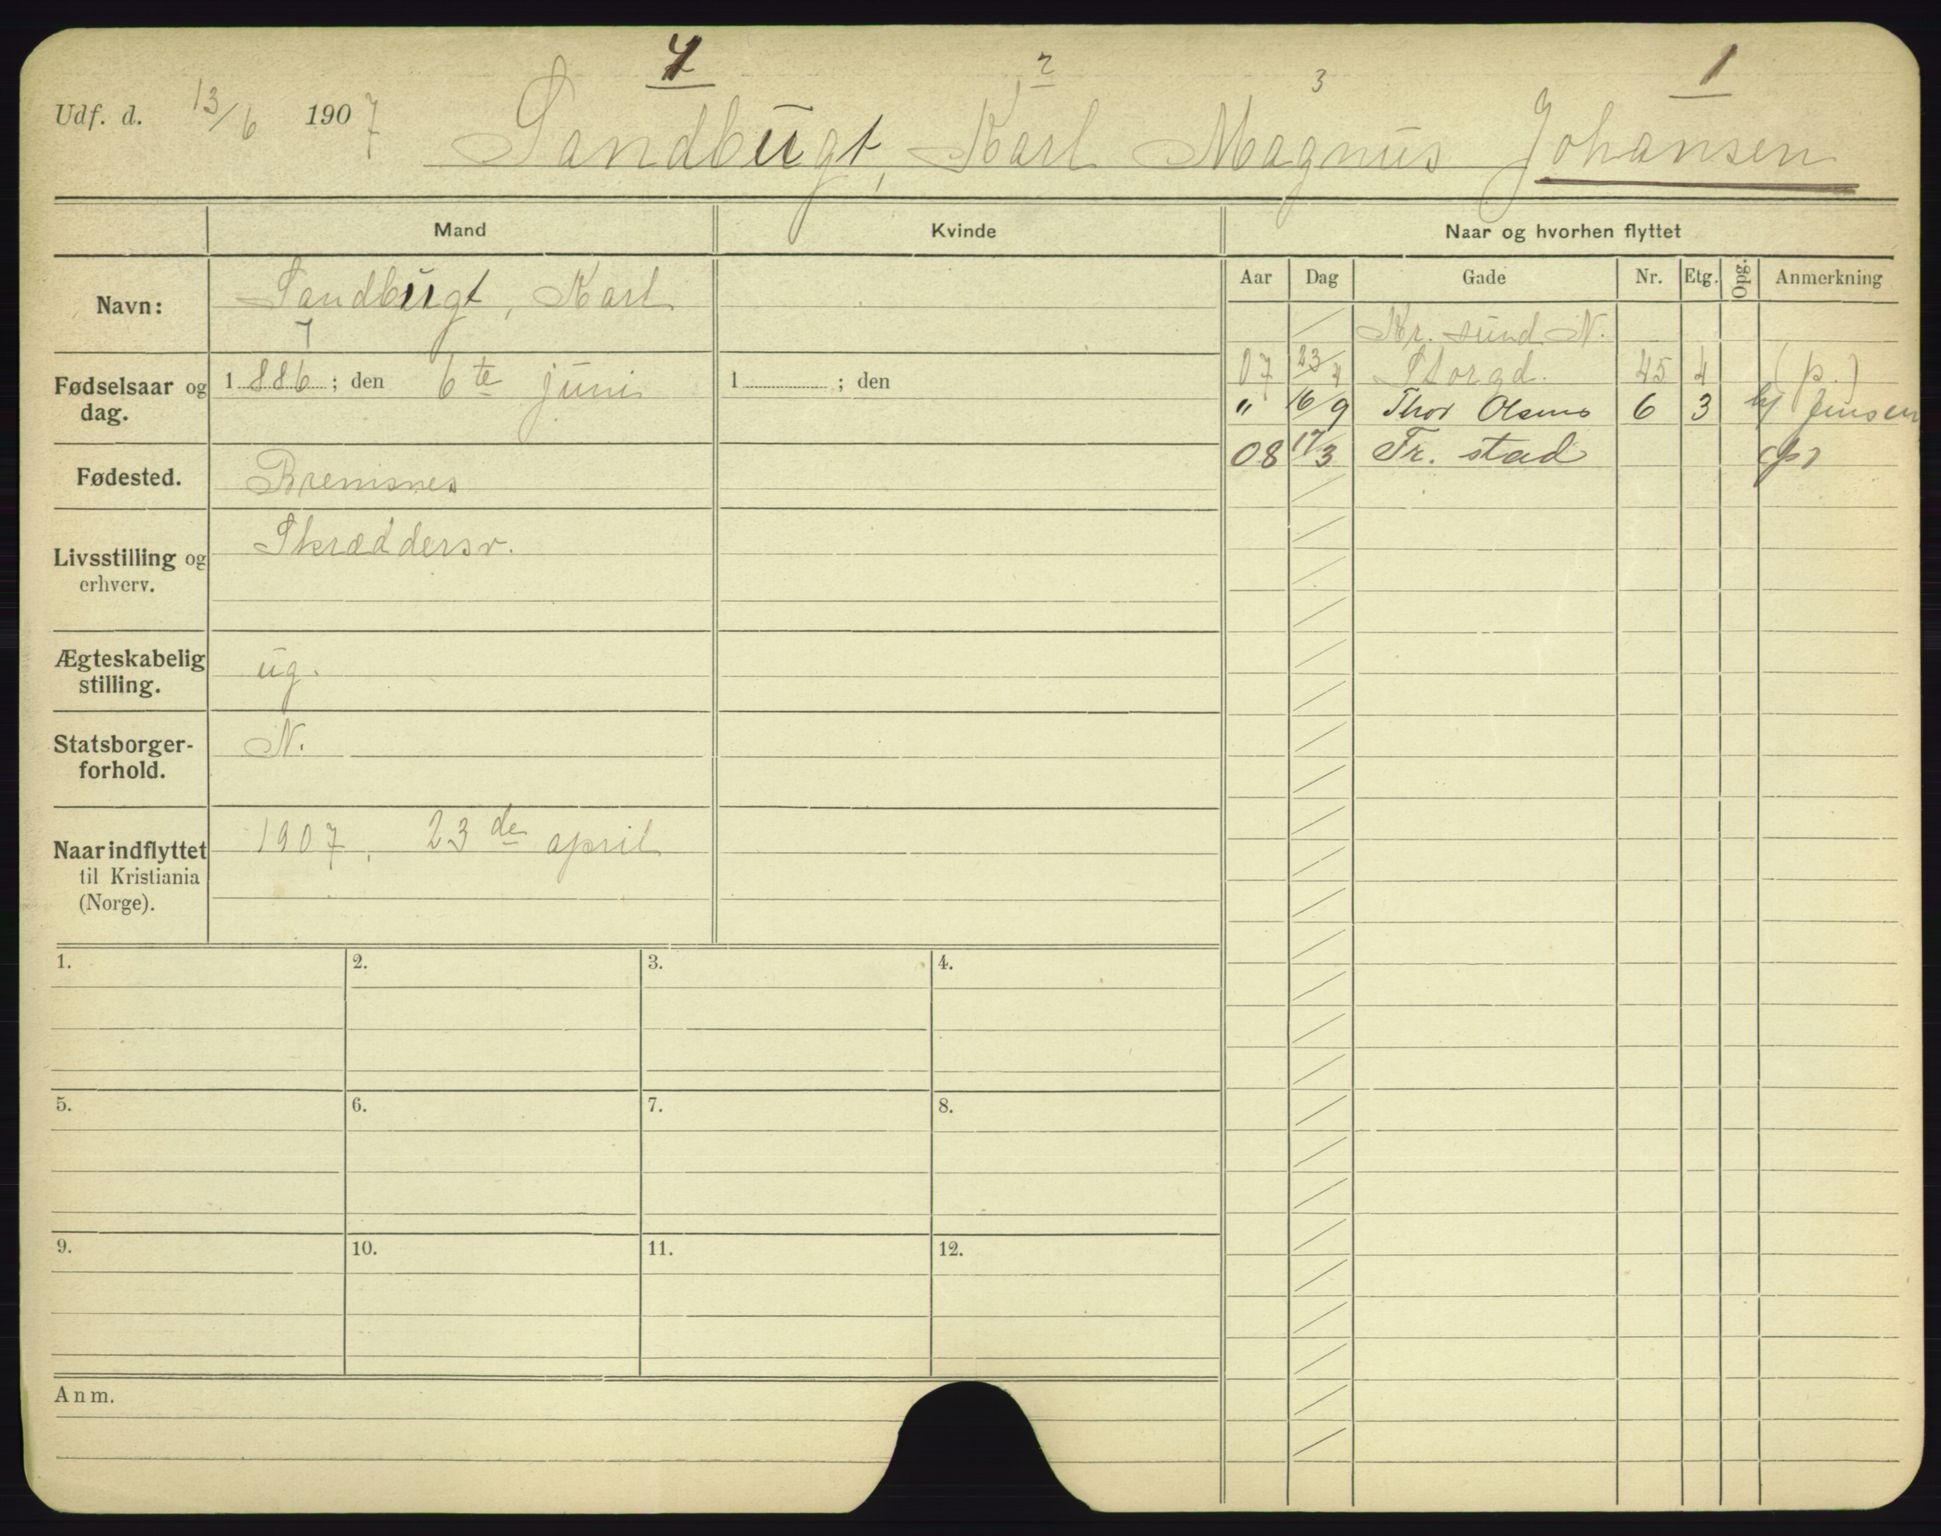 4 2 3 1
Udf. d. 13/6 1907 Sandbugt, Karl Magnus Johansen
Mand Kvinde Naar og hvorhen flyttet
Navn: Sandbugt, Karl
Fødselsaar og dag. 1886; den 6te juni 1 ; den
Fødested. Bremsnes
Livsstilling og erhverv. Skræddersv.
Ægteskabelig stilling. ug.
Statsborgerforhold. N.
Naar indflyttet til Kristiania (Norge). 1907, 23de april
Aar Dag Gade Nr. Etg. Opg. Anmerkning
Kr. sund N.
07 23/4 Storgd. 45 4 (p.)
" 16/9 Thor Olsens 6 3 hj Jensen
08 17/3 Fr. stad (p)
1. 2. 3. 4.
5. 6. 7. 8.
9. 10. 11. 12.
Anm.